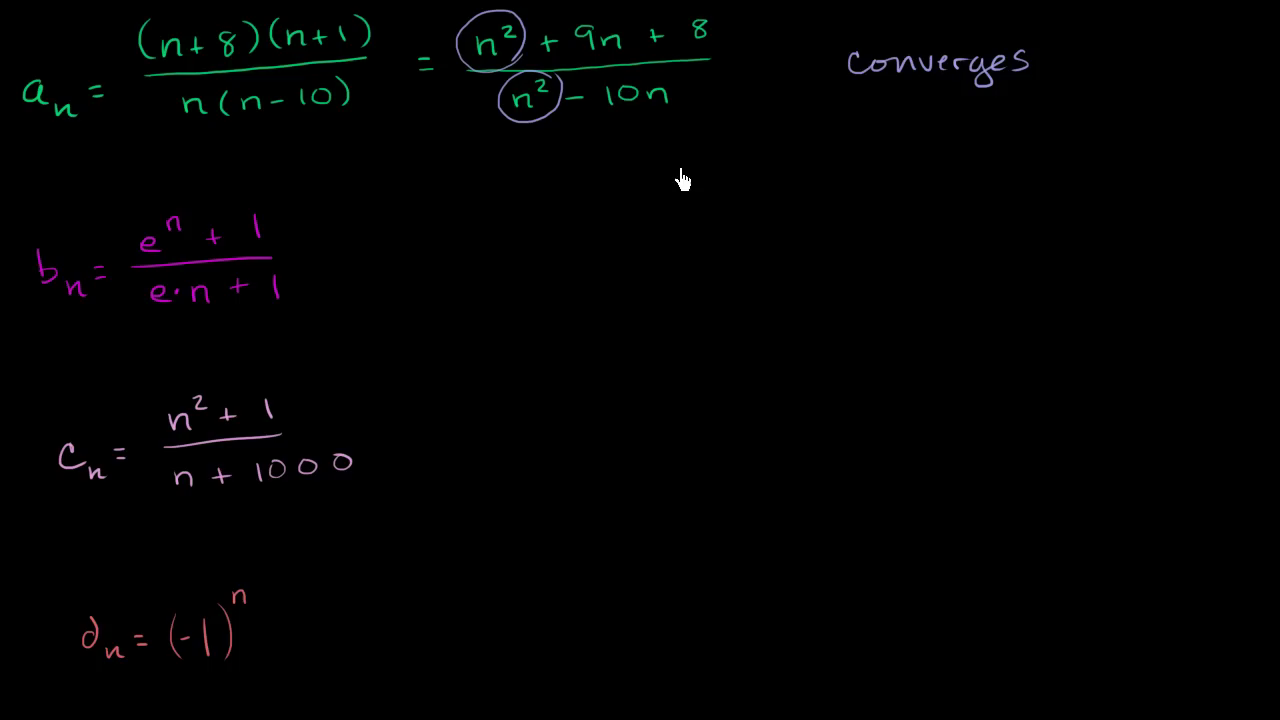 aₙ = (n+8)(n+1) / n(n-10) = n² + 9n + 8 / n² - 10n converges
bₙ = eⁿ + 1 / e·n + 1
cₙ = n² + 1 / n + 1000
dₙ = (-1)ⁿ